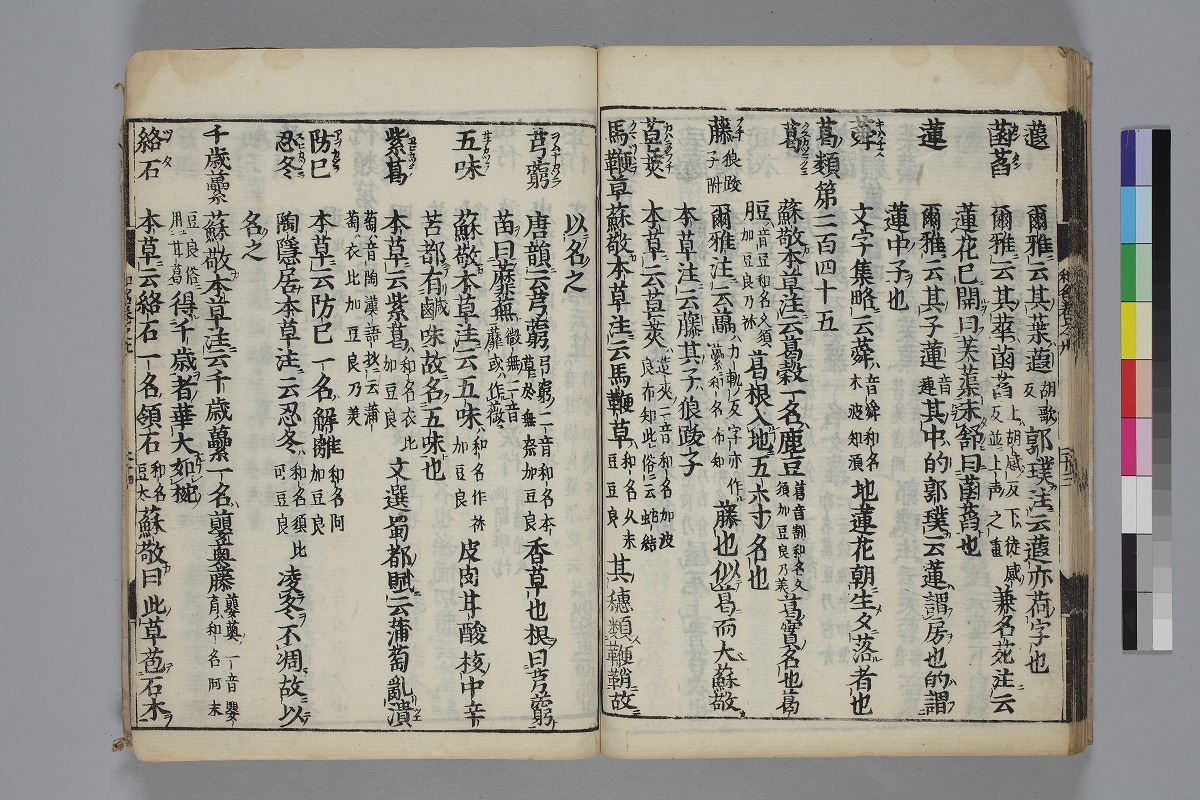 蕸 爾雅云其葉蕸胡歌反郭璞注云蕸亦荷字也
菡萏 爾雅云其華菡萏上胡感反下徒感反並上声之重兼名苑注云
蓮花已開曰芙蕖未舒曰菡萏也
蓮 爾雅云其子蓮音蓮其中的郭璞云蓮謂房也的謂
蓮中子也
蕣 文字集略云蕣音舜和名木波知須地蓮花朝生夕落者也
葛類第二百四十五
葛 蘇敬本草注云葛穀一名鹿豆葛音割和名久須加豆良乃美葛實名也葛
脰音豆和名久須加豆良乃祢葛根入地五六寸名也
藤狼跋子附 爾雅注云藟力軌反字亦作蘽和名布知藤也似葛而大蘇敬
本草注云藤其子狼跋子
皂莢 本草云皂莢造夾二音和名加波良布知此俗云蛇結
馬鞭草 蘇敬本草注云馬鞭草和名久末豆々良其穗類鞭鞘故
以名之
芎藭 唐韻云芎藭弓窮二音和名本草於無奈加豆良香草也根曰芎藭
苗曰蘼蕪微無二音蘼或作薇
五味 蘇敬本草注云五味和名作祢加豆良皮肉甘酸核中辛
苦都有鹹味故名五味也
紫葛 本草云紫葛和名衣比加豆良文選蜀都賦云蒲萄亂潰
萄音陶漢語抄云蒲萄衣比加豆良乃美
防已 本草云防已一名解離和名阿加豆良
忍冬 陶隱居本草注云忍冬和名須比可豆良凌冬不凋故以
名之
千歲虆 蘇敬本草注云千歲虆一名蘡薁藤蘡薁一音嬰育和名阿末
豆良俗用甘葛得千歲者華大如椀
絡石 本草云絡石一名領石和名豆太蘇敬曰此草苞石木